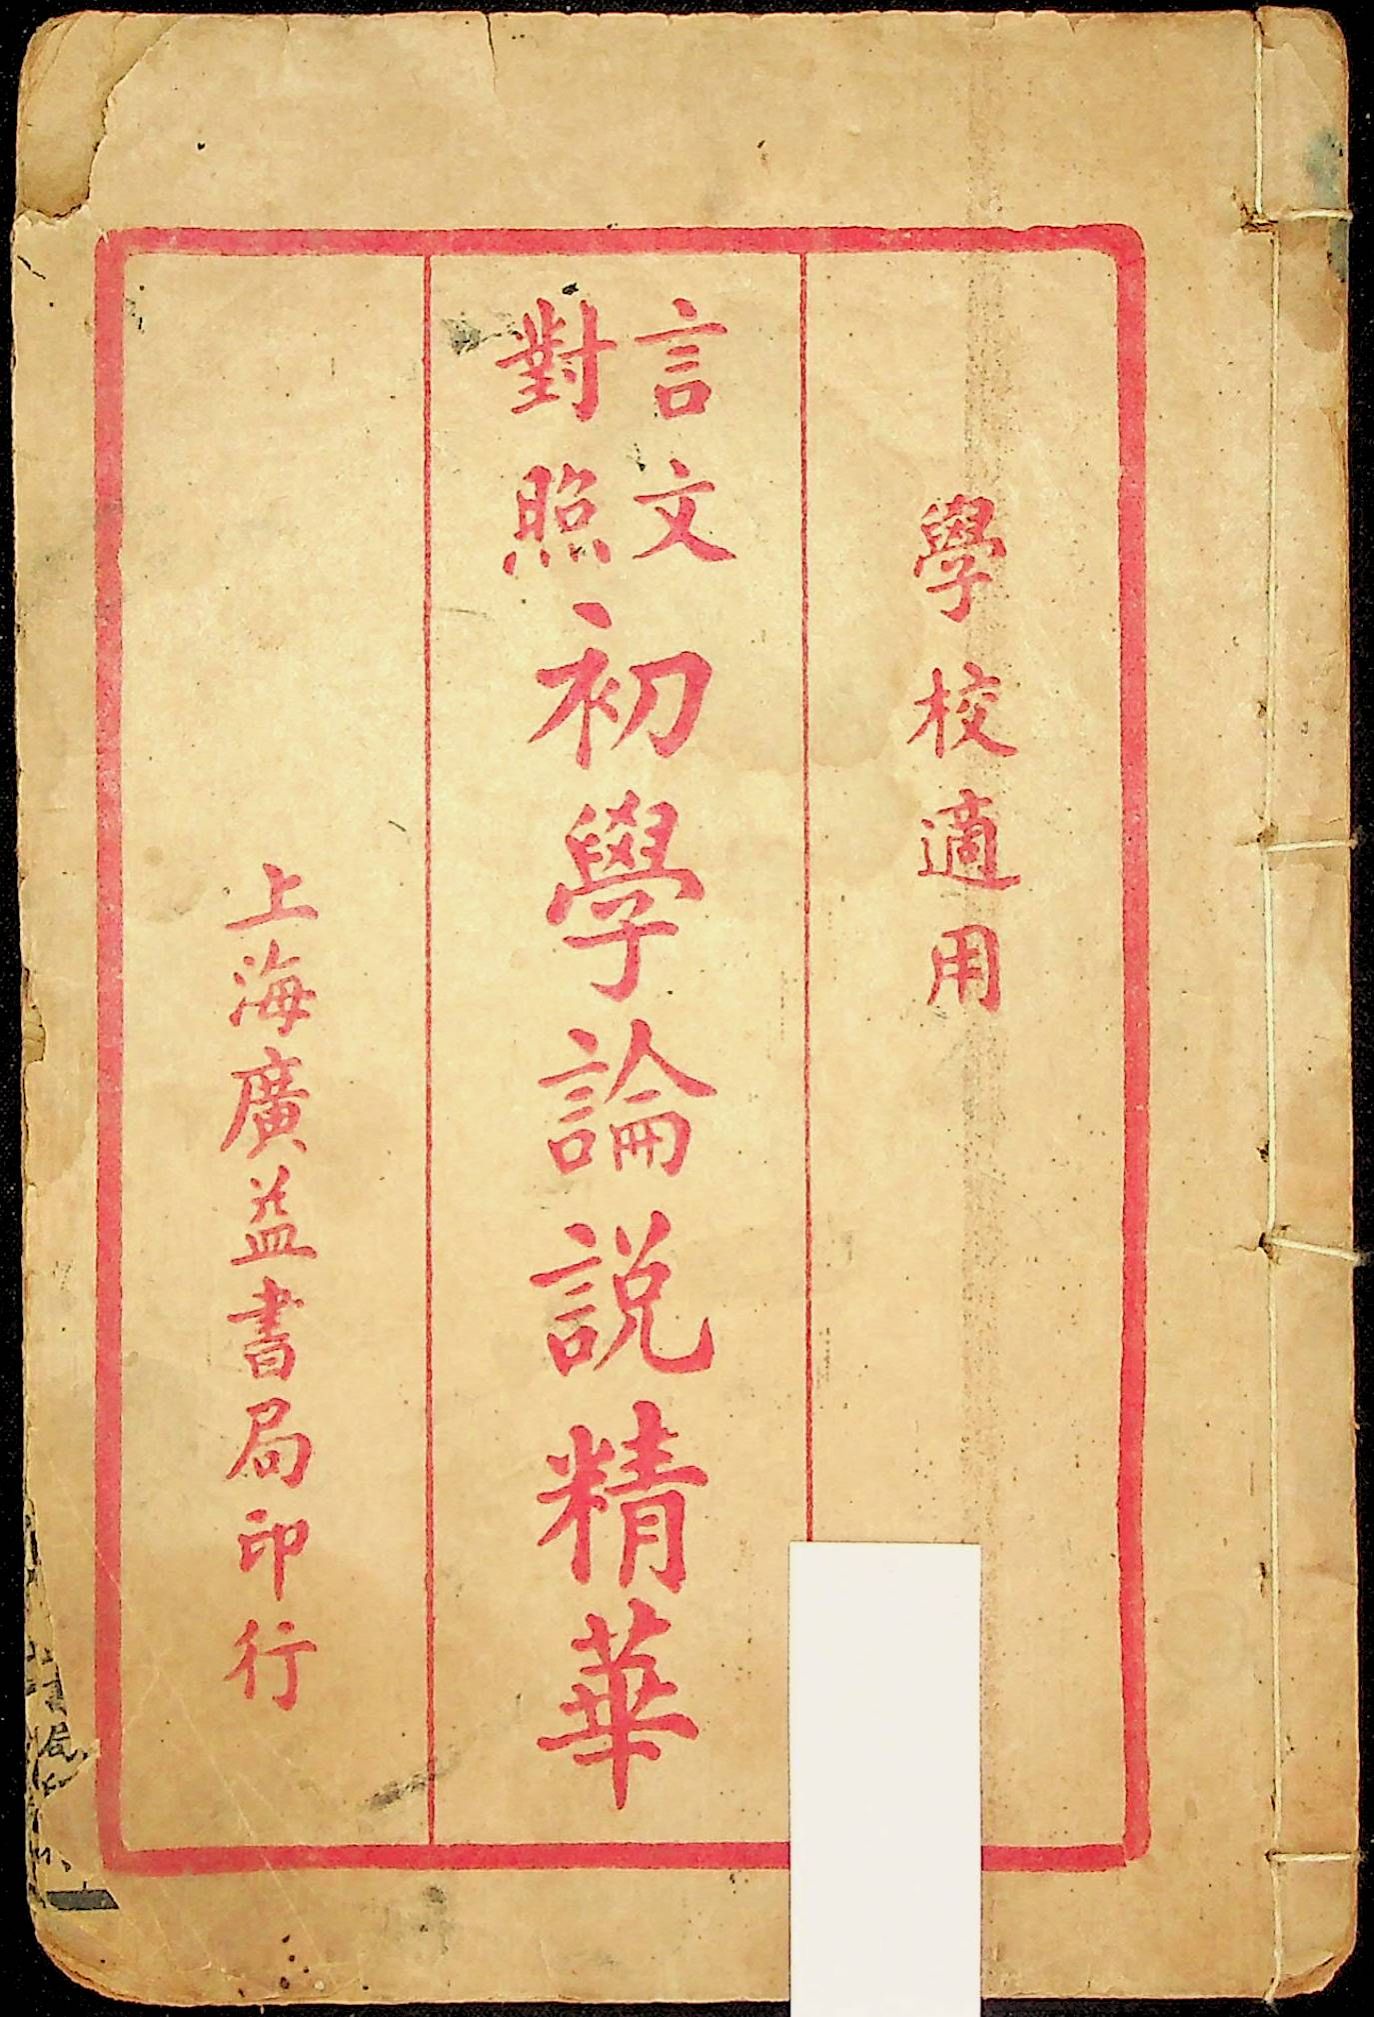 學校適用
言文
對照
初學論説精華
上海廣益書局印行